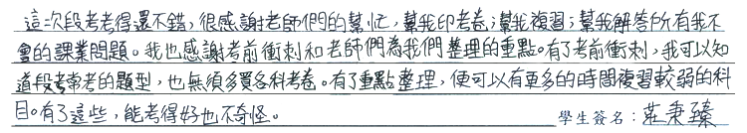 這次段考考得還不錯，很感謝老師們的幫忙，幫我印考卷；幫我複習；幫我解答所有我不
會的課業問題。我也感謝考前衝刺和老師們為我們整理的重點。有了考前衝刺，我可以知
道段考常考的題型，也無須多買各科考卷。有了重點整理，便可以有更多的時間複習較弱的科
目。有了這些，能考得好也不奇怪。
學生簽名：莊秉臻